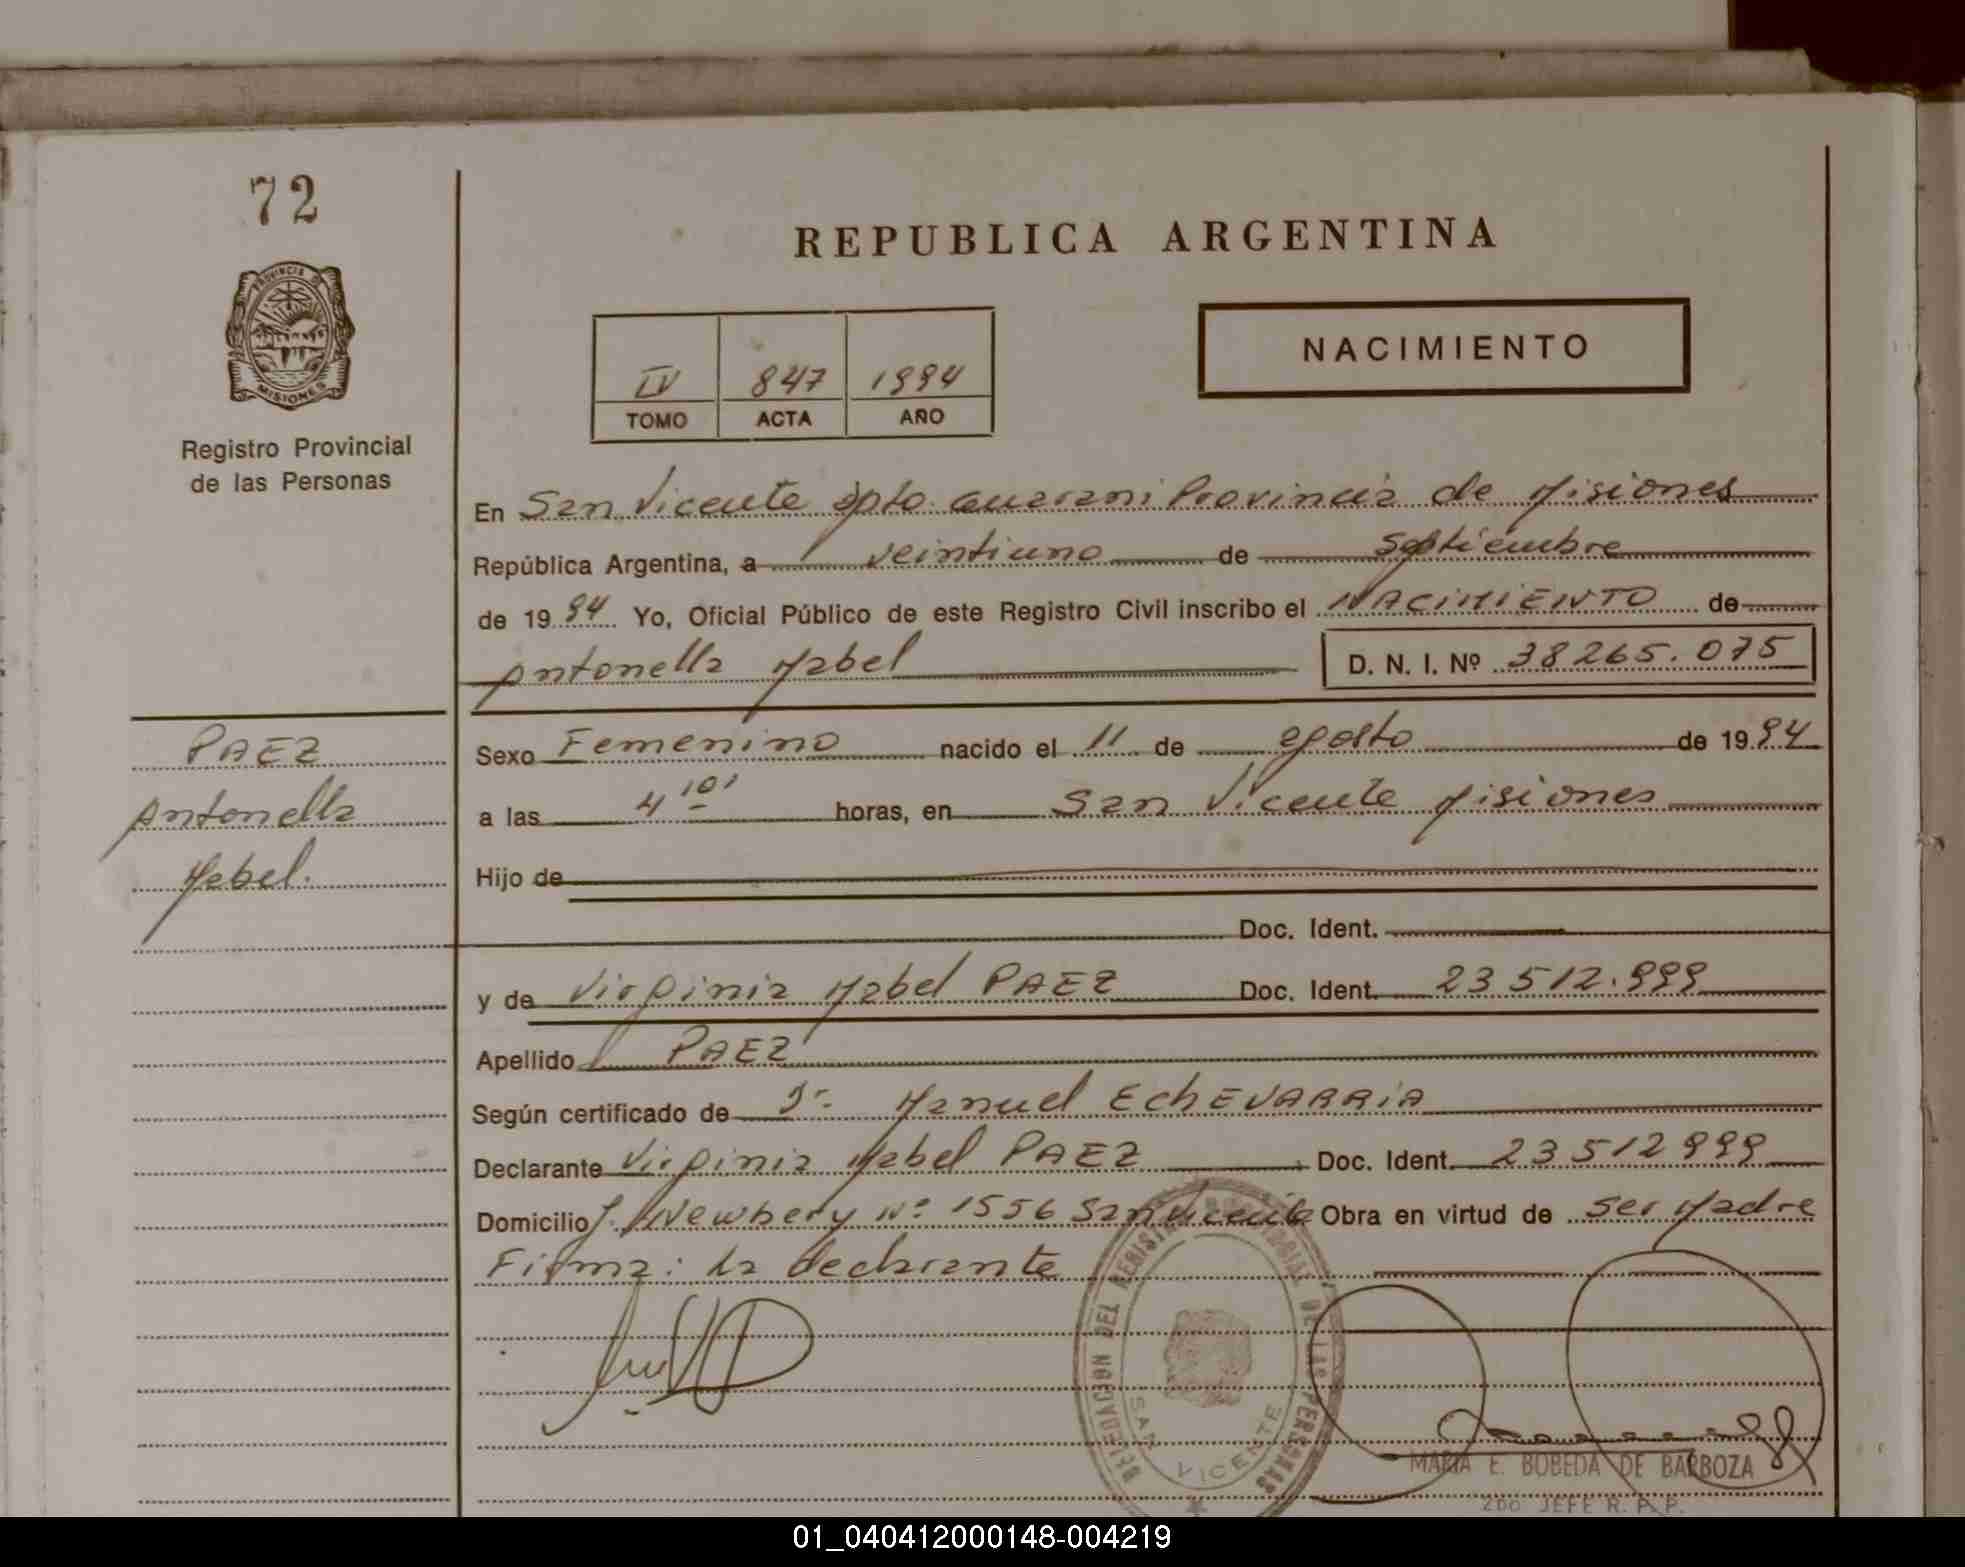 72
REPUBLICA ARGENTINA
PROVINCIA D
MISIONES
Registro Provincial
de las Personas
IV 847 1994
TOMO ACTA AÑO
NACIMIENTO
En San Vicente Dpto. Guarani Provincia de Misiones
República Argentina, a veintiuno de Septiembre
de 1994 Yo, Oficial Público de este Registro Civil inscribo el NACIMIENTO de
Antonella Mabel D. N. I. Nº 38265.075
PAEZ
Antonella
Mabel.
Sexo Femenino nacido el 11 de agosto de 1994
a las 4 10' horas, en San Vicente Misiones
Hijo de
Doc. Ident.
y de Virginia Mabel PAEZ Doc. Ident. 23512.999
Apellido PAEZ
Según certificado de Dr. Manuel EchEVARRiA
Declarante Virginia Mabel PAEZ Doc. Ident. 23512999
Domicilio J. Newbery Nº 1556 San Vicente Obra en virtud de ser Madre
Firma: la declarante
DELEGACION DEL REGISTRO PROVINCIAL DE LAS PERSONAS
SAN VICENTE
MARIA E. BOBEDA DE BARBOZA
2DO JEFE R. P. P.
01_040412000148-004219